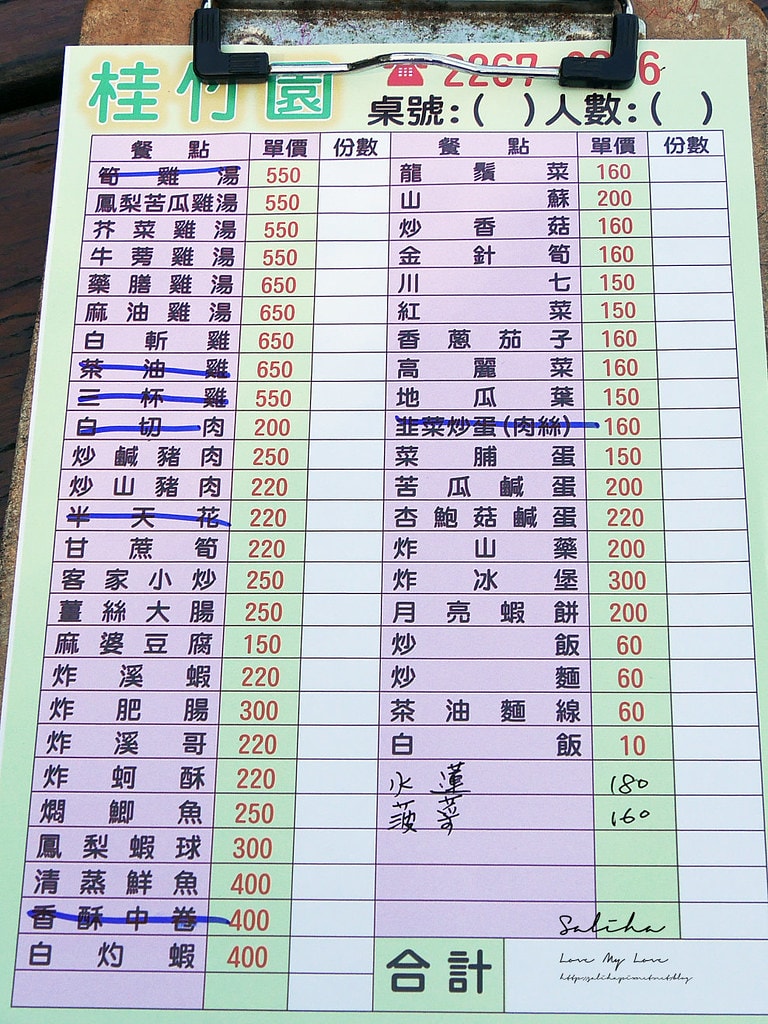 桂竹園
桌號:( )人數:( )
餐點 單價 份數 餐點 單價 份數
筍雞湯 550 龍鬚菜 160
鳳梨苦瓜雞湯 550 山蘇 200
芥菜雞湯 550 炒香菇 160
牛蒡雞湯 550 金針筍 160
藥膳雞湯 650 川七 150
麻油雞湯 650 紅菜 150
白斬雞 650 香蔥茄子 160
茶油雞 650 高麗菜 160
三杯雞 550 地瓜葉 150
白切肉 200 韭菜炒蛋(肉絲) 160
炒鹹豬肉 250 菜脯蛋 150
炒山豬肉 220 苦瓜鹹蛋 200
半天花 220 杏鮑菇鹹蛋 220
甘蔗筍 220 炸山藥 200
客家小炒 250 炸冰堡 300
薑絲大腸 250 月亮蝦餅 200
麻婆豆腐 150 炒飯 60
炸溪蝦 220 炒麵 60
炸肥腸 300 茶油麵線 60
炸溪哥 220 白飯 10
炸蚵酥 220 水蓮 180
燜鯽魚 250 菠菜 160
鳳梨蝦球 300
清蒸鮮魚 400
香酥中卷 400
白灼蝦 400
合計
Saliha
Love My Love